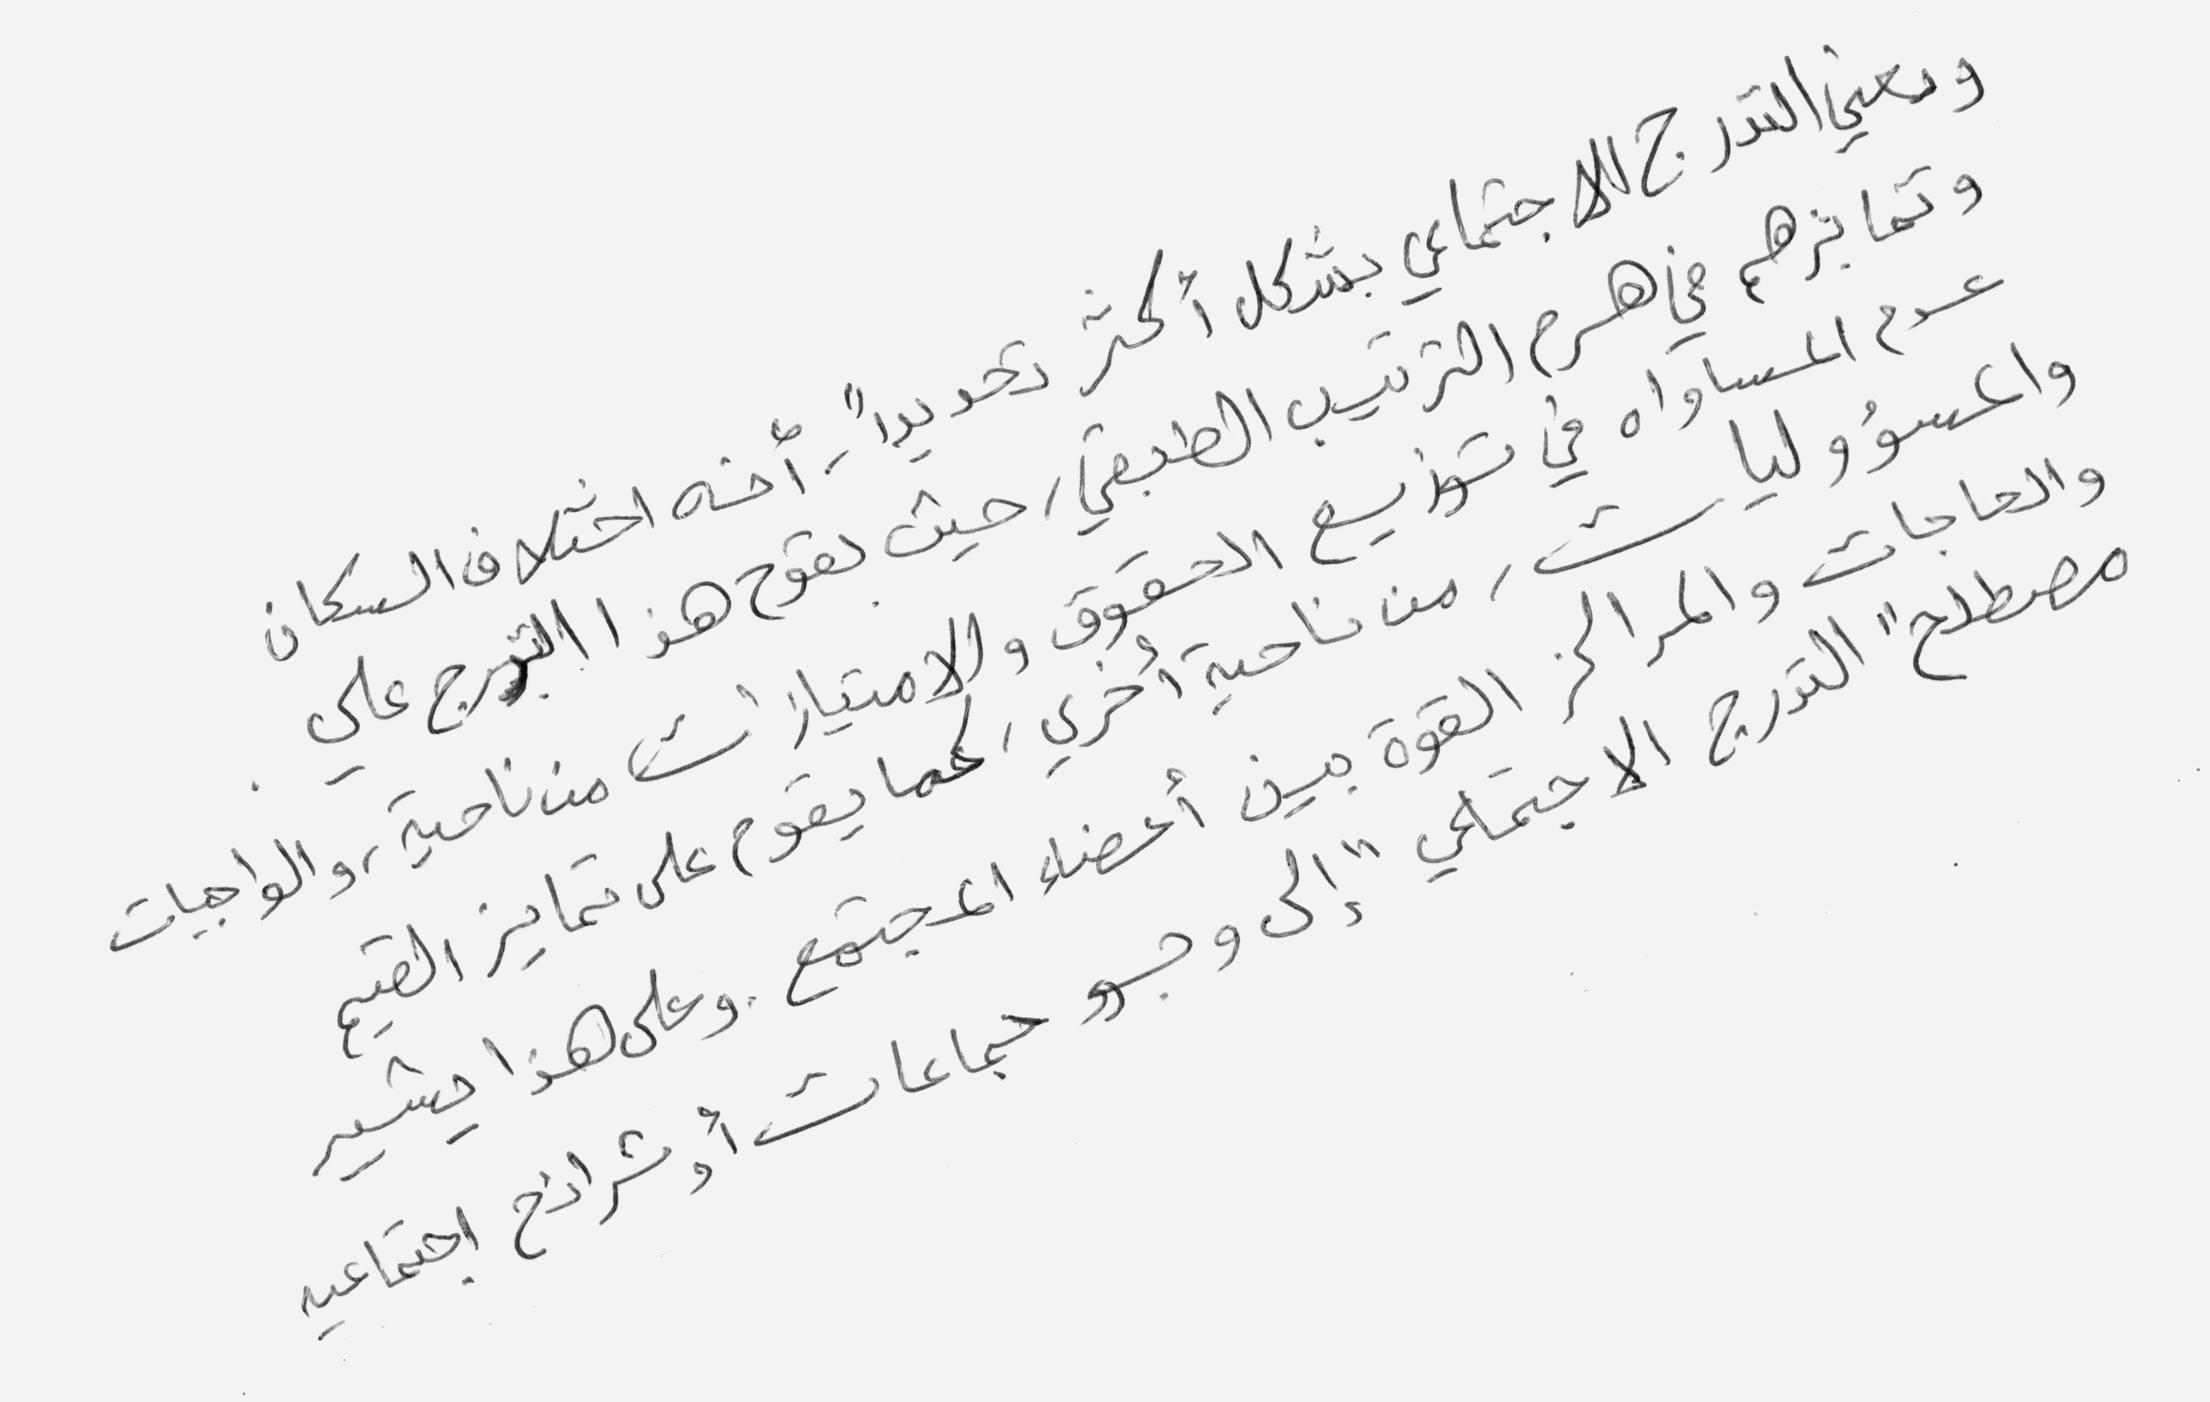 ومعني التدرج الاجتماعي بشكل أكثر تحديداً، أنه اختلاف السكان
وتمايزهم في هرم الترتيب الطبقي، حيث يقوم هذا التدرج علي
عدم المساواه في توزيع الحقوق والامتيازات من ناحية، والواجبات
والمسؤوليات، من ناحية أخري، كما يقوم على تمايز القيم
والحاجات والمراكز القوة بين أعضاء المجتمع. وعلى هذا يشير
مصطلح "التدرج الاجتماعي" إلى وجود جماعات أو شرائح اجتماعيه